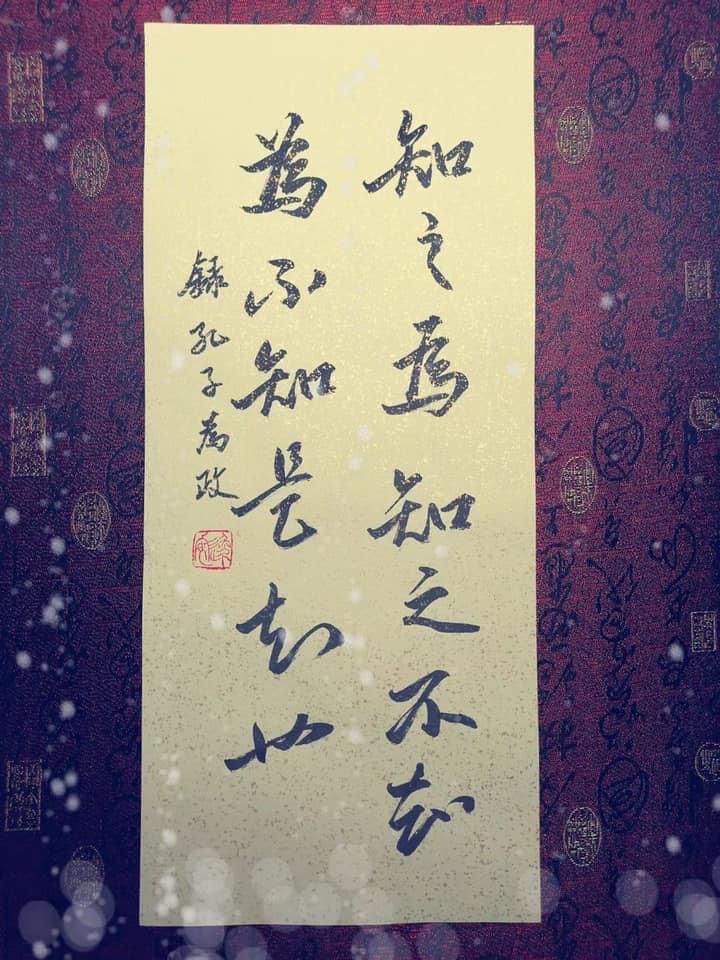 知之為知之不知
為不知是知也
錄孔子為政